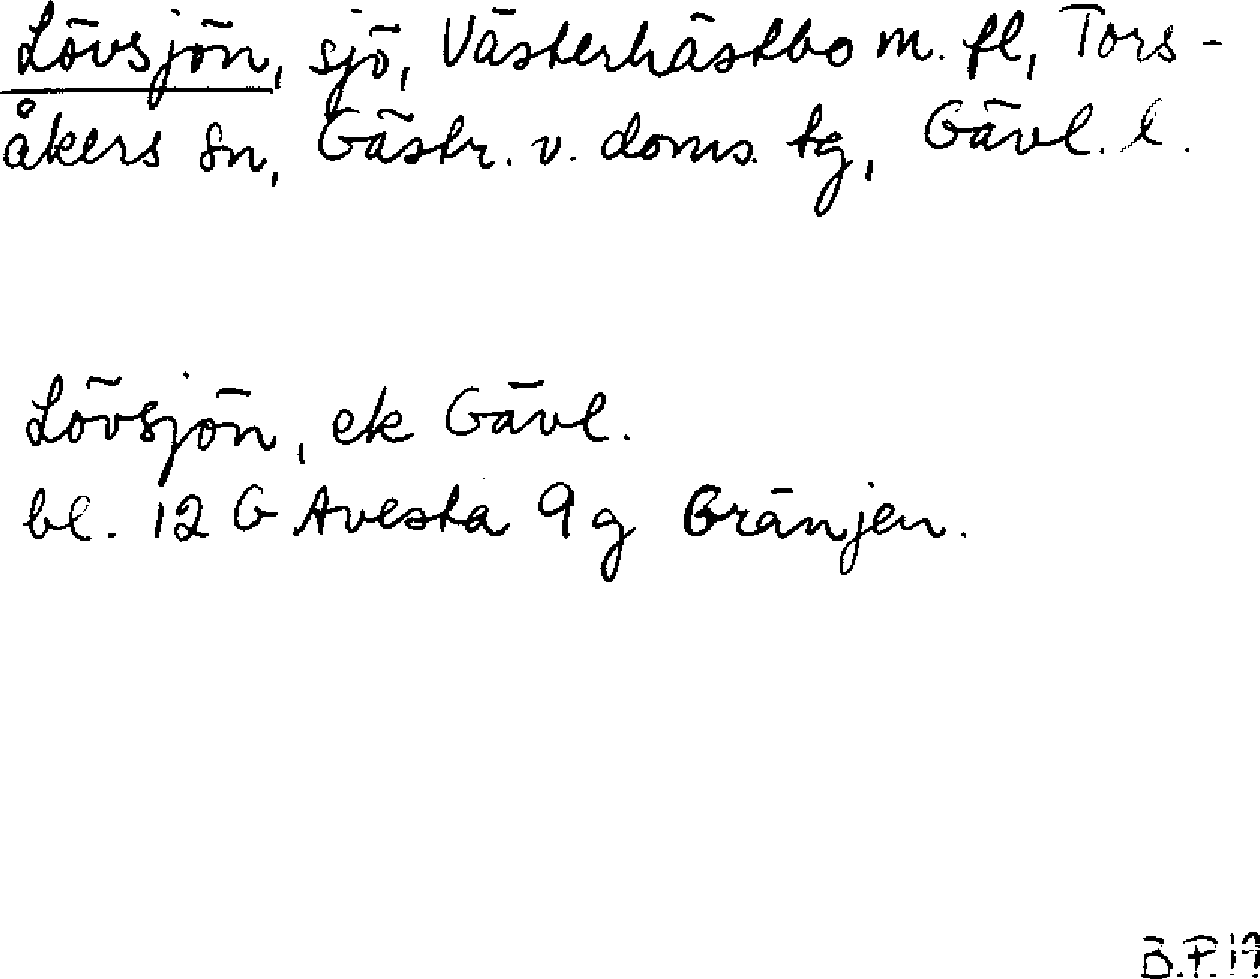 Lövsjön, sjö, Västerhästbo m. fl, Tors-
åkers sn, Gästr. v. doms. tg, Gävl. l.
Lövsjön, ek Gävl.
bl. 12 G Avesta 9 g Gränjen.
B.P. 19